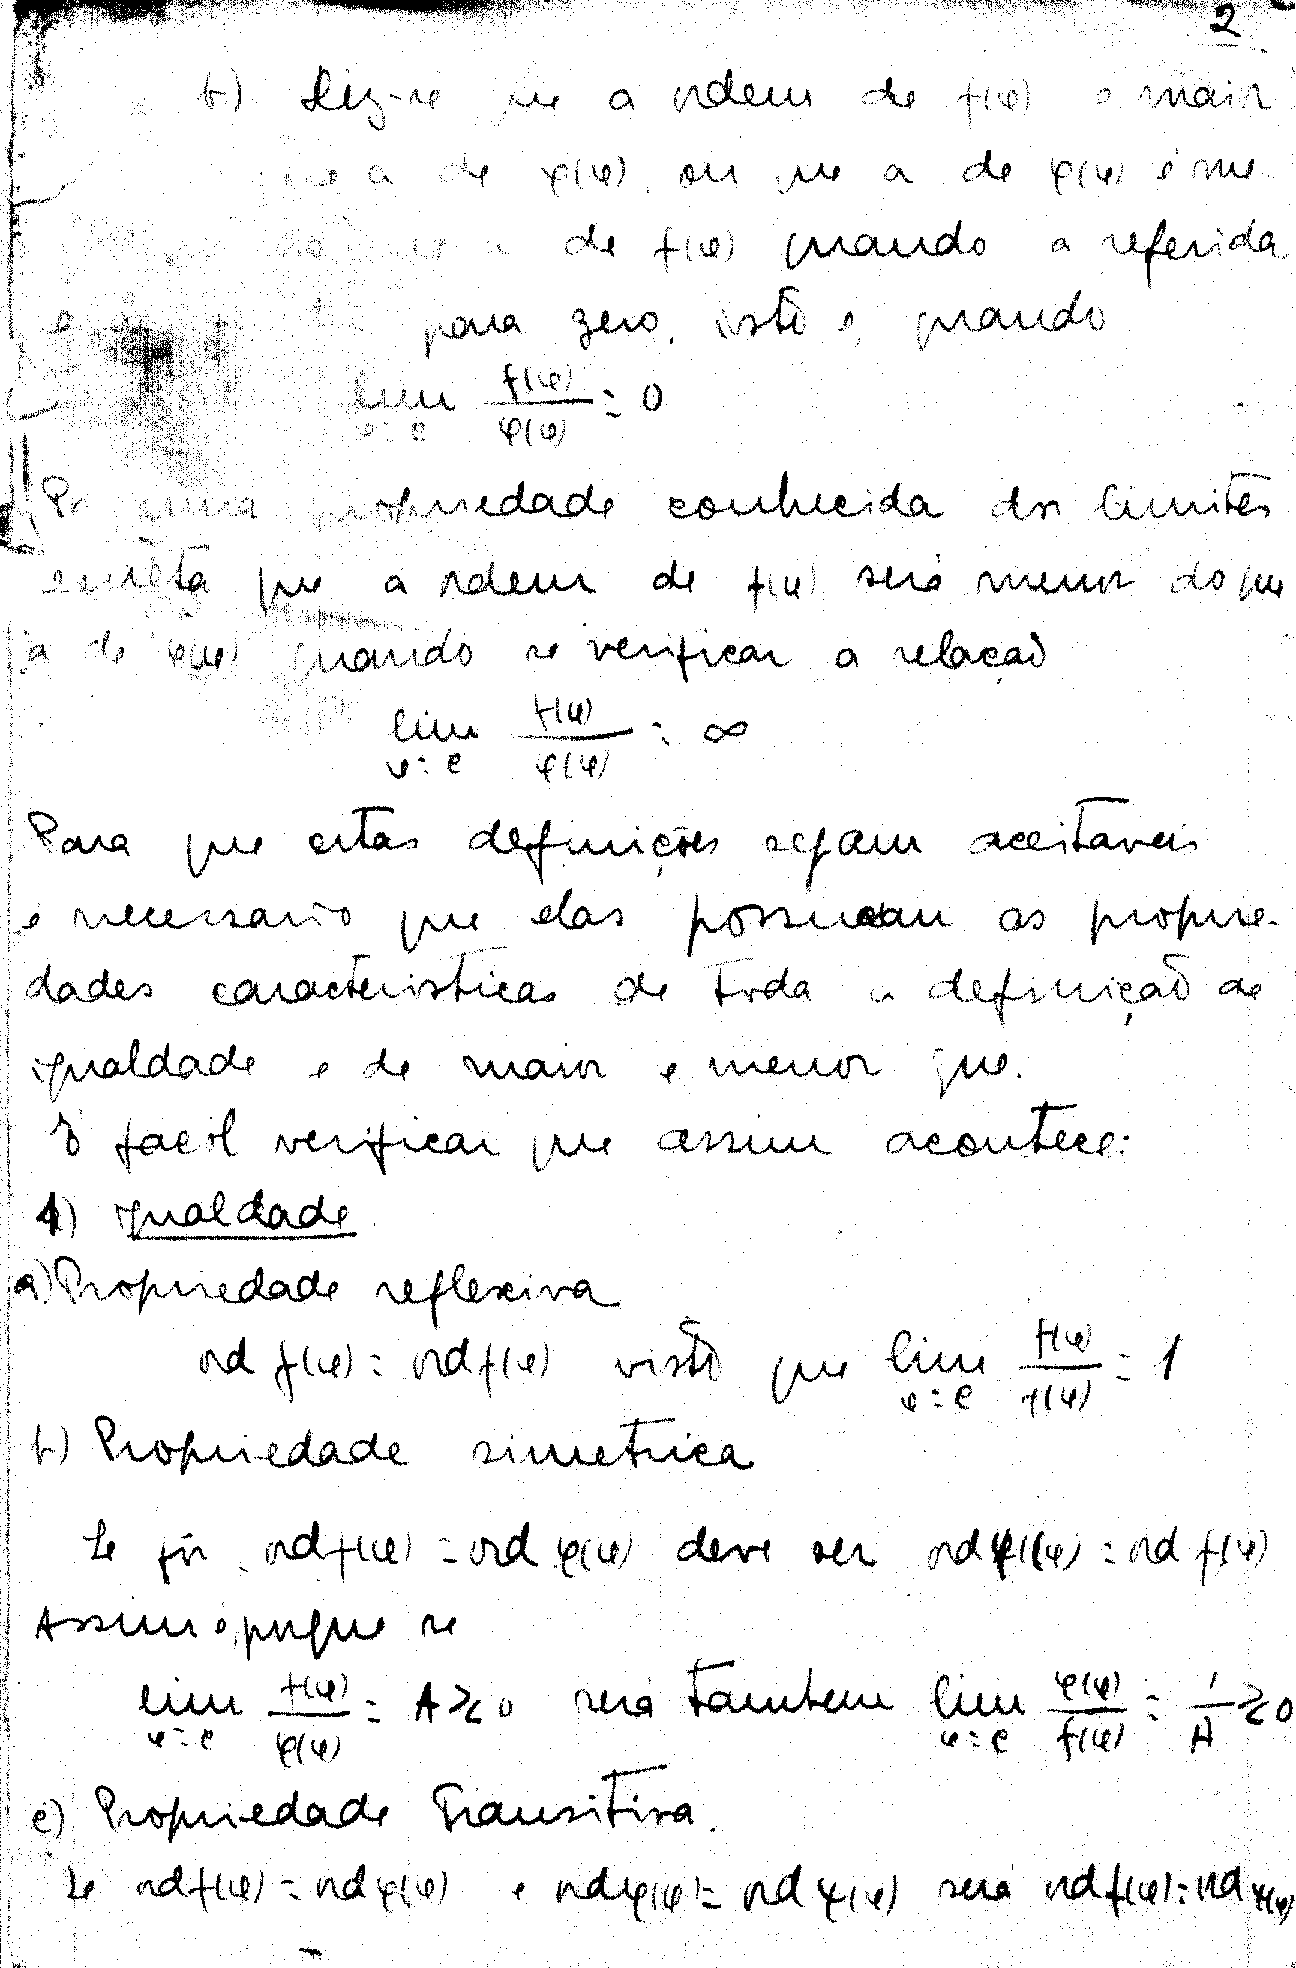 2
b) Diz-se que a ordem de f(φ) é maior
que a de φ(φ), ou que a de φ(φ) é me
de f(φ) quando a referida
para zero, isto é, quando
lim f(φ)/φ(φ) = 0
φ=c
propriedade conhecida dos limites
que a ordem de f(φ) será menor do que
a de φ(φ) quando se verificar a relação
lim f(φ)/φ(φ) = ∞
φ=c
Para que estas definições sejam aceitaveis
é necessario que elas possuam as proprie-
dades caracteristicas de toda a definição de
igualdade e de maior e menor que.
É facil verificar que assim acontece:
1) igualdade
a) Propriedade reflexiva
ord f(φ) = ord f(φ) visto que lim f(φ)/f(φ) = 1
φ=c
b) Propriedade simetrica
Se fôr ord f(φ) = ord φ(φ) deve ser ord φ(φ) = ord f(φ)
Assim é, porque se
lim f(φ)/φ(φ) = A≷0 será tambem lim φ(φ)/f(φ) = 1/A ≷0
φ=c φ=c
c) Propriedade Transitiva.
Se ord f(φ) = ord φ(φ) e ord φ(φ) = ord ψ(φ) será ord f(φ) = ord ψ(φ)